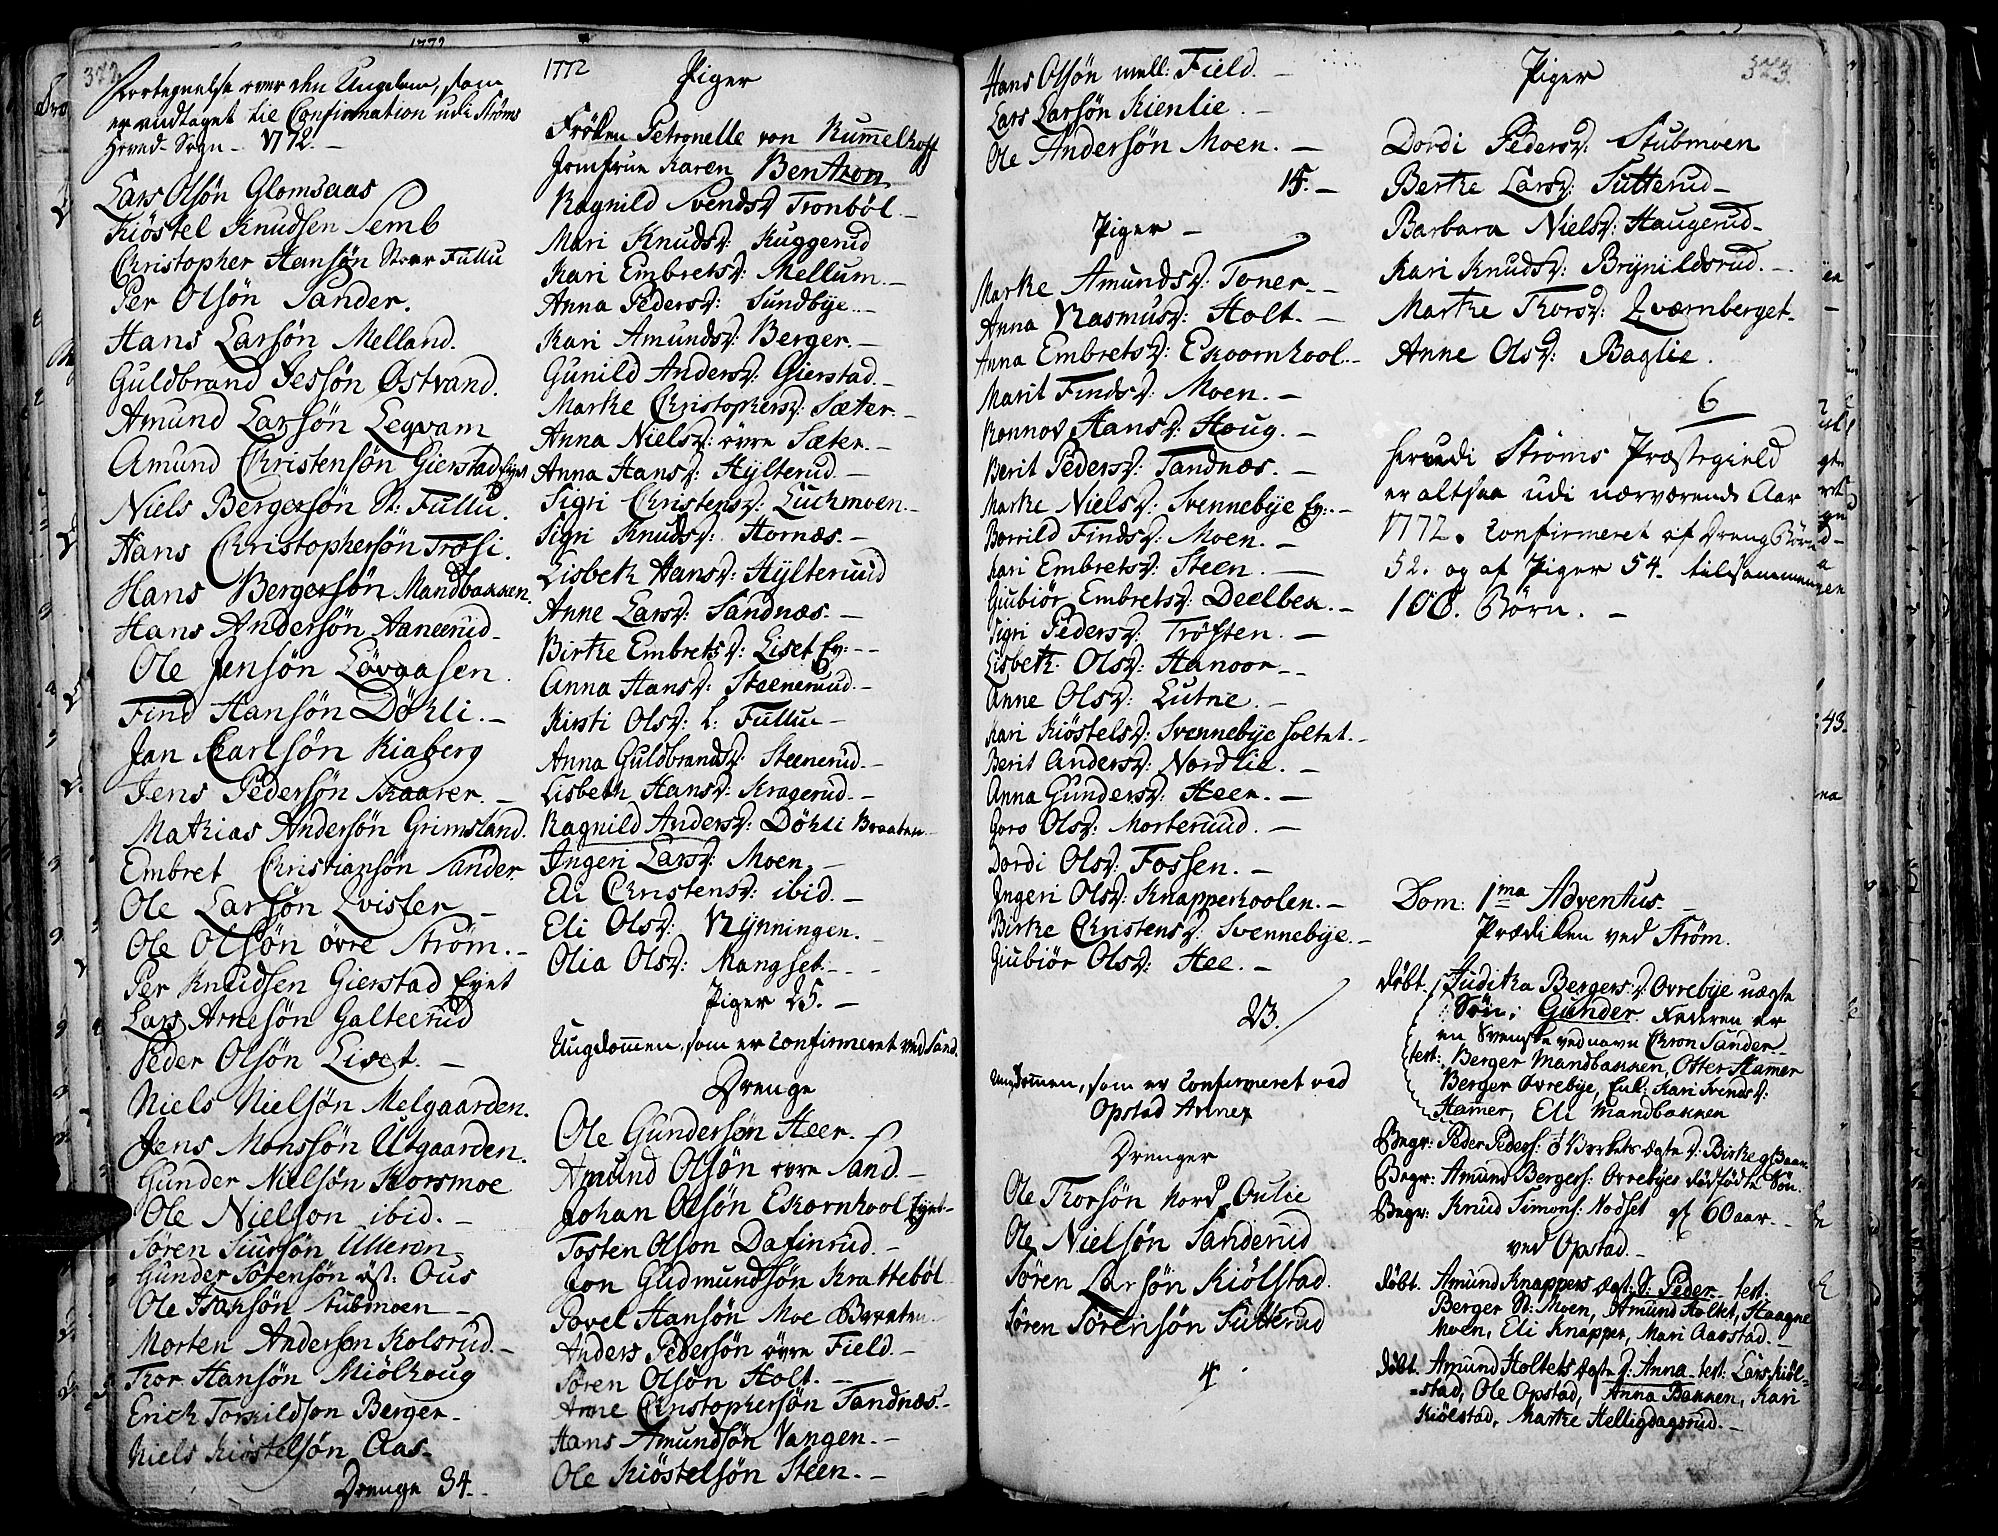 1772
Fortegnelse over den Ungdom, som
er andtaget til Confirmation udi Ströms
Hoved-Sogn - 1772. -
Lars Olsön Glomsaas
Kiöstel Knudsen Semb
Christopher Hansön Stoer Fullu
Per Olsön Sander.
Hans Larsön Melland.
Guldbrand Jessön Østvand.
Amund Larsön Legvam
Amund Christensön Gierstad Eyet
Niels Bergersön St: Fullu.
Hans Christophersön Træsi.
Hans Bergersön Mandbakken.
Hans Andersön Aanerud -
Ole Jensön Lövaasen.
Find Hansön Döhli. -
Jan Karlsön Kiaberg
Jens Pedersön Skaarer. -
Mathias Andersön Grimsland.
Embret Christiansön Sander.
Ole Larsön Qvister -
Ole Olsön övre Ström. -
Per Knudsen Gierstad Eyet
Lars Arnesön Galterud
Peder Olsön Liset. -
Niels Nielsön Melgaarden.
Jens Monssön Utgaarden.
Gunder Nielsön Korsmoe
Ole Nielson ibid. -
Sören Siursön Ulleren -
Gunder Sörensön öst: Ous
Ole Isaksön Stubmoen -
Morten Anderson Kolsrud. -
Tror Hansön Miölhoug
Erich Torkildson Berger -
Niels Kiöstelsön Aas -
Drenge 34. -
1772 Piger
Fröken Petronelle von Kummelhoff
Jomfrue Karen Bentzon
Ragnild Svendsd: Tronböl -
Mari Knudsd: Kuggerud
Kari Embretsd: Mellum. -
Anna Pedersd: Sundbye. -
Kari Amundsd: Berger. -
Gunild Andersd: Gierstad. -
Marthe Christophersd: Sæter. -
Anna Nielsd: övre Sæter. -
Anna Hansd: Hylterud -
Sigri Christensd: Luchmoen. -
Sigri Knudsd: Hornæs. -
Lisbeth Hansd: Hylterud
Anne Larsd: Sandnæs. -
Birthe Embretsd: Liset Ey: -
Anna Hansd: Steenerud -
Kirsti Olsd: L: Fullu -
Anna Guldbrandsd: Steenerud -
Lisbeth Hansd: Kragerud -
Ragnild Andersd: Döhli Braaten -
Ingeri Larsd: Moen -
Eli Christensd: ibid. -
Eli Olsd: Nynningen. -
Olia Olsd: Mangset - -
Piger 25. -
Ungdommen, som er Confirmeret ved Sand.
Drenge
Ole Gundersön Heer. -
Amund Olsön övre Sand. -
Johan Olsön Ekornhool Eyet -
Tosten Olson Dafinrud. -
Jon Gudmundsön Kratteböl
Povel Hansön Moe Braaten
Anders Pedersön övre Field. -
Sören Olsön Holt. -
Arne Christophersön Sandnæs. -
Hans Amundsön Vangen. -
Ole Kiöstelsön Steen. -
323.
Hans Olsön mell: Field. -
Lars Larsön Kienlie. -
Ole Andersön Moen. -
15. -
Piger -
Marthe Amundsd: Toner. -
Anna Rasmusd: Holt. -
Anna Embretsd: Ekoornhool. -
Marit Findsd: Moen. -
Ronnov Hansd: Houg. -
Berit Pedersd: Sandnæs. -
Marthe Nielsd: Svennebye Ey: -
Borrild Findsd: Moen. -
Kari Embretsd: Steen. -
Giubiör Embretsd: Deelbek. -
Sigri Pedersd: Tröften. -
Lisbeth Olsd: Hanoor -
Anne Olsd: Lutne. -
Kari Kiöstelsd: Svennebye holtet. -
Berit Andersd: Nordlie. -
Anna Gundersd: Heer. -
Goro Olsd: Morterud. -
Dordi Olsd: Fossen. -
Ingeri Olsd: Knapperhoolen. -
Birthe Christensd: Svennebye. -
Giubiör Olsd: Hee. -
23.
Ungdommen, som er Confirmeret ved
Opstad Annex
Drenger
Ole Thorsön Nord Oulie
Ole Nielsön Sanderud
Sören Larsön Kiölstad.
Sören Sörensön Sutterud
4
Piger
Dordi Pedersd: Stubmoen
Berthe Larsd: Sutterud -
Barbara Nielsd: Haugerud -
Kari Knudsd: Brynildsrud. -
Marthe Thorsd: Qværnberget -
Anne Olsd: Baglie.
6
her udi Ströms Præstegield
er altsaa udi nærværende Aar
1772. Confirmeret af Dreng Börn
52. og af Piger 54. tilsammen
106. Börn. -
Dom: 1ma Adventus. -
Prædiken ved Ström.
döbt. Juditha Bergersd. Ovrebye uægte
Sön. Gunder. Faderen er
en Svenske ved navn Chron Sander
test: Berger Mandbakken, Otter Hamer
Berger Ovrebye, Enk: Kari Svendsd:
Hamer, Eli Mandbakken
Begr: Amund Bergers: Ovrebyes dödfödte Sön.
Begr: Knud Simons: Nodset gl 60 aar. -
ved Opstad. -
döbt. Amund Knappers ægte S: Peder. test.
Berger St: Moen, Amund Holtet, Haagne
Moen, Eli Knapper, Mari Aarstad. -
döbt. Amund Holtets ægte d. Anna. test: Lars Kiöl-
-stad, Ole Opstad, Anna Bakken, Kari
Kiölstad, Marthe Helligdagsrud. -